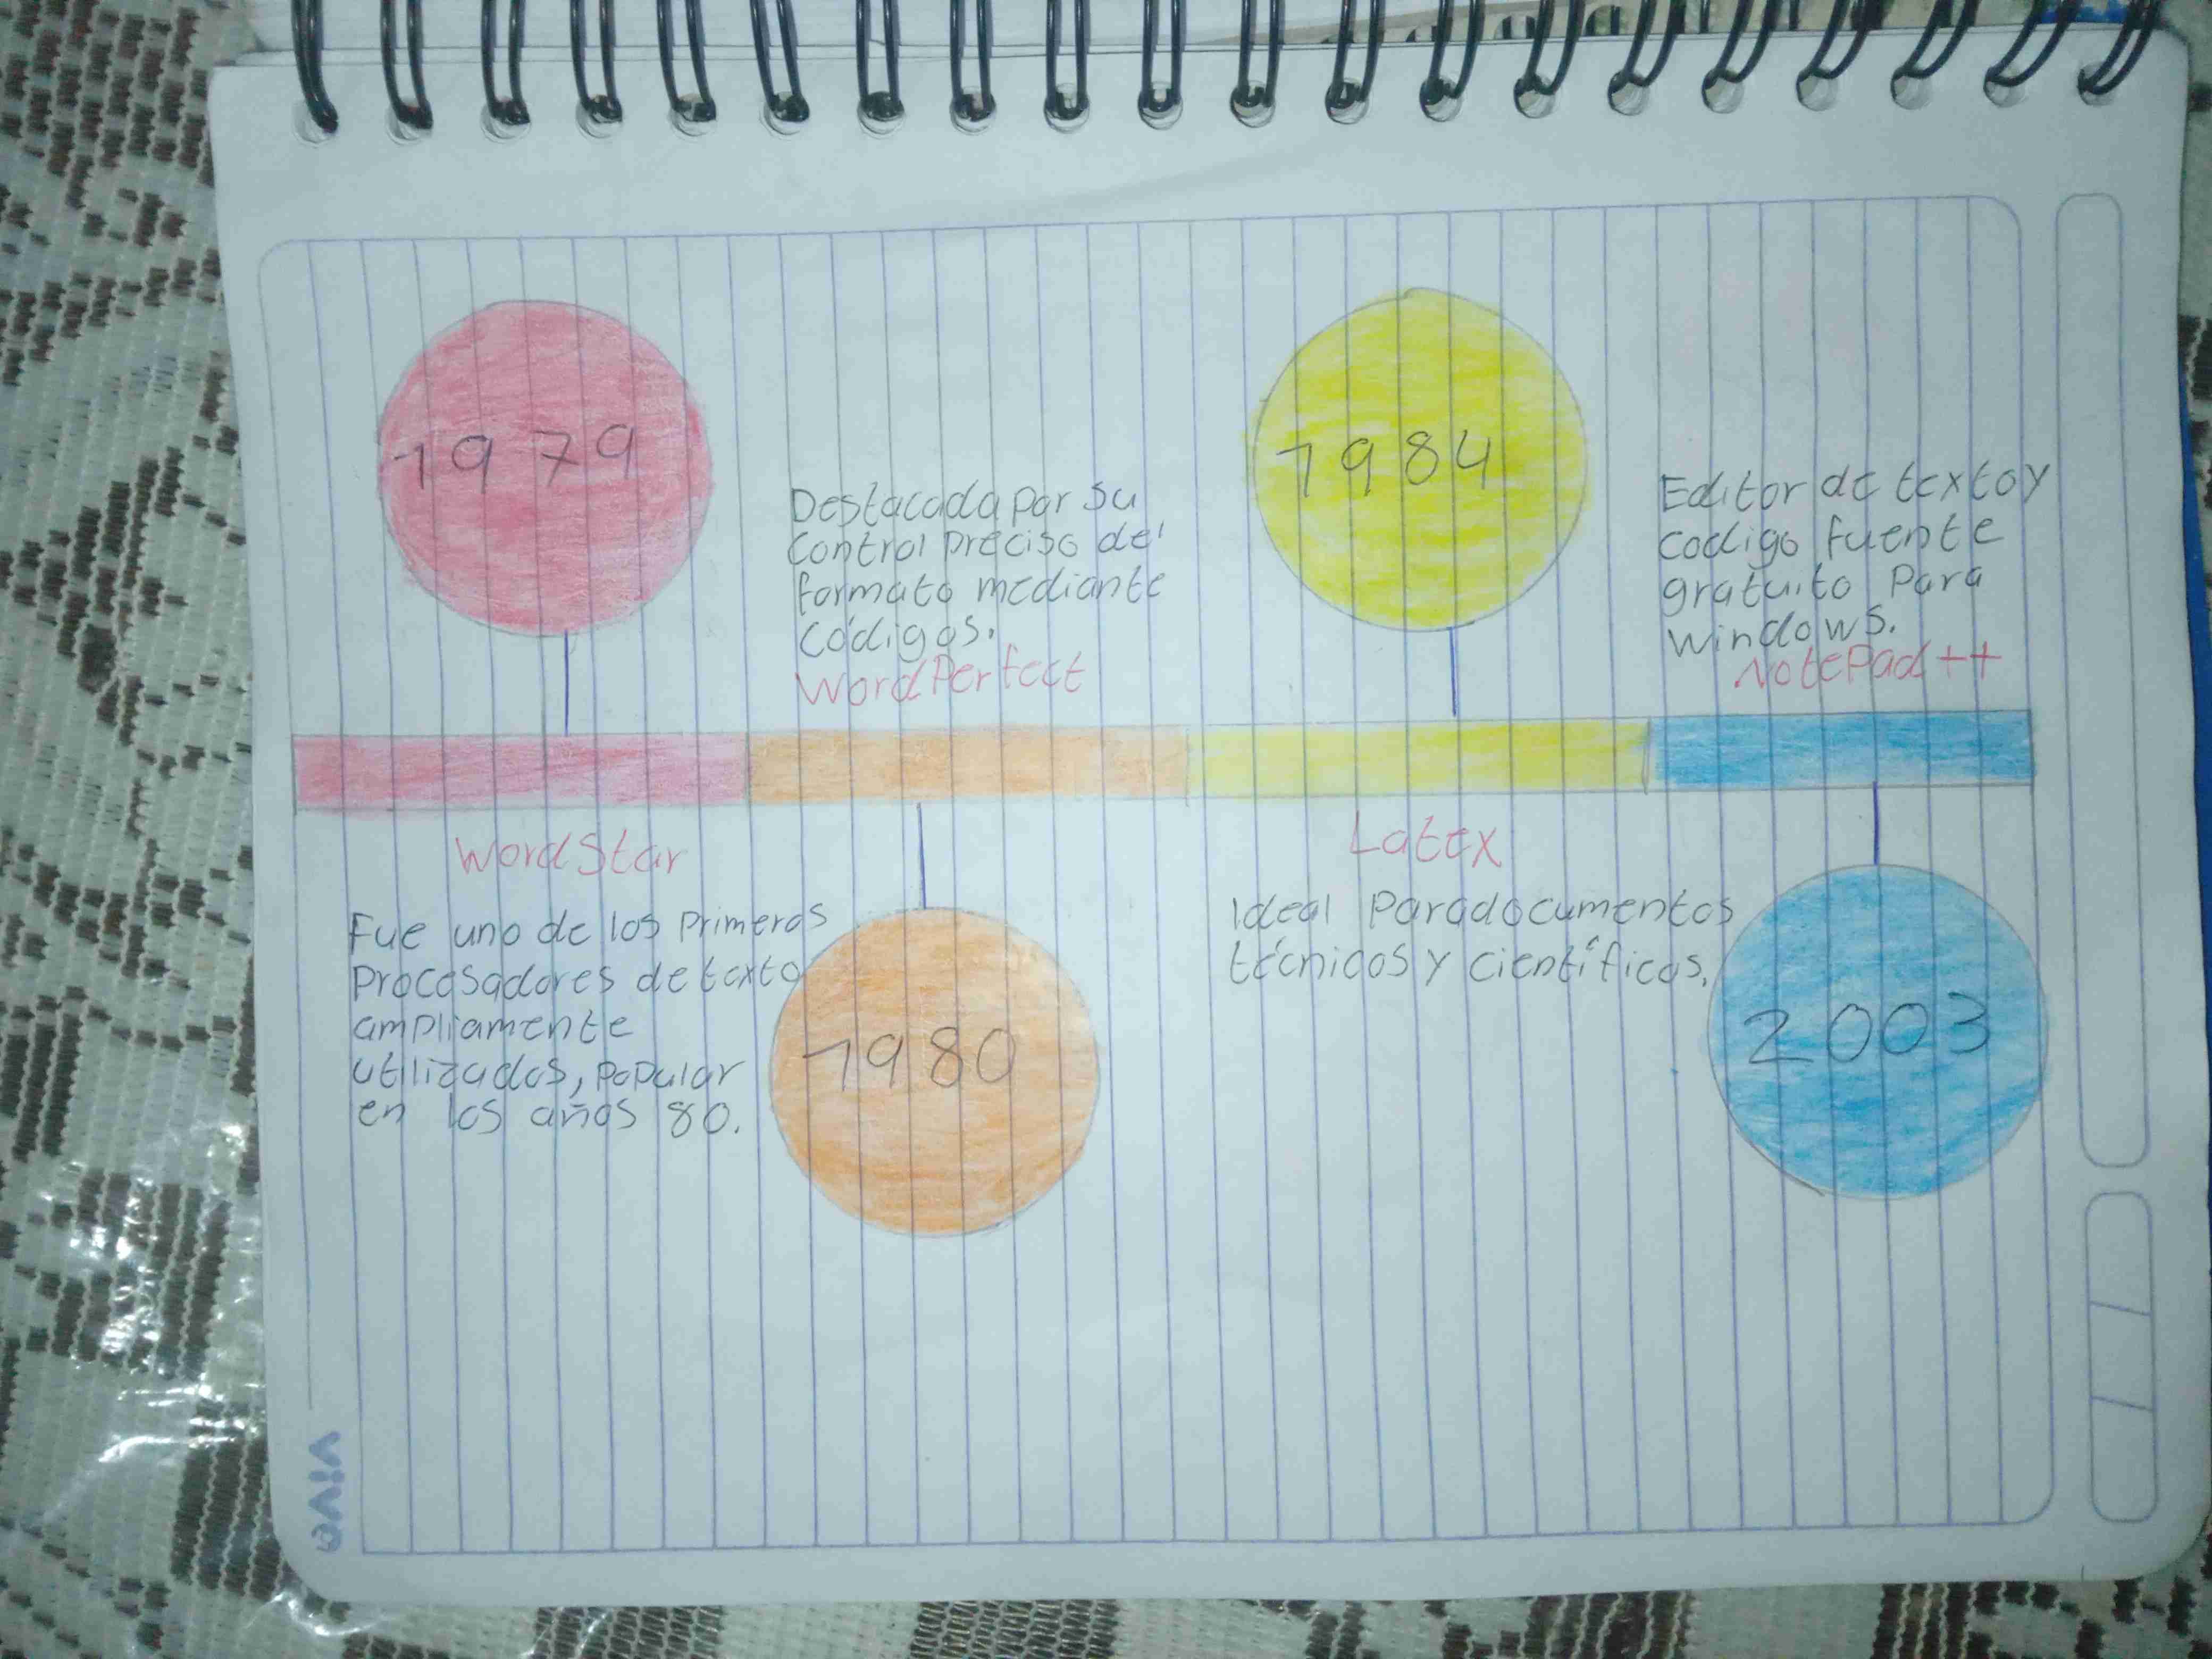 1979
WordStar
Fue uno de los Primeros
Procesadores de texto
ampliamente
utilizados, popular
en los años 80.
Destacada por su
control preciso del
formato mediante
códigos.
WordPerfect
1980
1984
Latex
Ideal Para documentos
técnicos y científicos.
Editor de texto y
codigo fuente
gratuito Para
windows.
NotePad++
2003
vivo